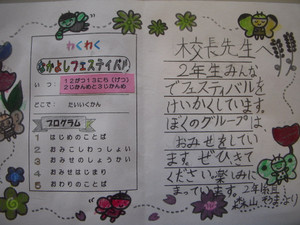 わくわく
なかよしフェスティバル
いつ：12がつ13にち(げつ)
2じかんめと3じかんめ
どこで：たいいくかん
プログラム
1 はじめのことば
2 おみこしわっしょい
3 おみせのしょうかい
4 おみせはじまり
5 おわりのことば
校長先生へ
2年生みんな
でフェスティバルを
けいかくしています。
ぼくのグループは
おみせをしてい
ます。ぜひきて
ください。楽しみに
まっています。2年
森山